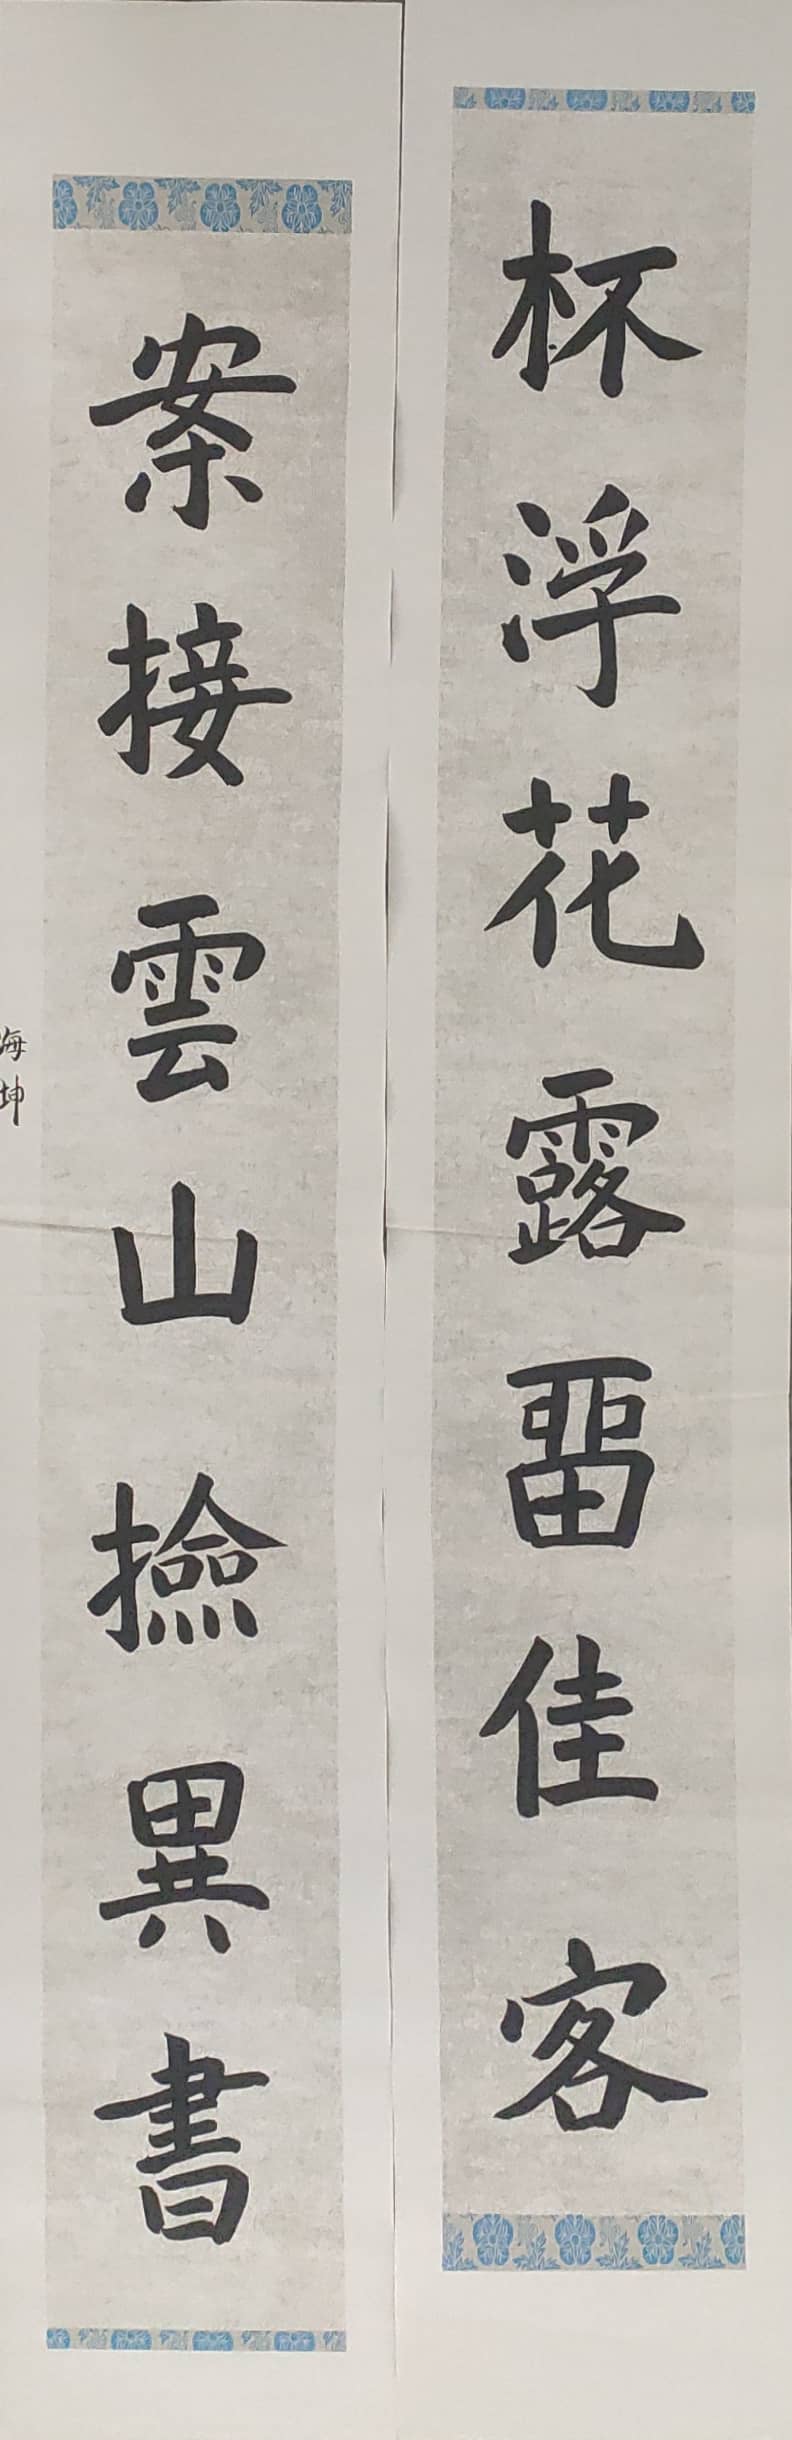 杯浮花露畱佳客
案接雲山撿異書
海坤